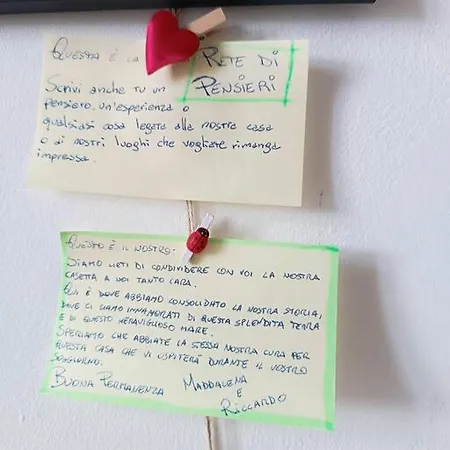 QUESTA È LA RETE DI PENSIERI
Scrivi anche tu un
pensiero, un'esperienza o
qualsiasi cosa legata alla nostra casa
o ai nostri luoghi che vogliate rimanga
impressa.
QUESTO È IL NOSTRO:
SIAMO LIETI DI CONDIVIDERE CON VOI LA NOSTRA
CASETTA A NOI TANTO CARA.
QUI È DOVE ABBIAMO CONSOLIDATO LA NOSTRA STORIA,
DOVE CI SIAMO INNAMORATI DI QUESTA SPLENDITA TERRA
E DI QUESTO MERAVIGLIOSO MARE.
SPERIAMO CHE ABBIATE LA STESSA NOSTRA CURA PER
QUESTA CASA CHE VI OSPITERÀ DURANTE IL VOSTRO
SOGGIORNO.
BUONA PERMANENZA MADDALENA
E
RICCARDO